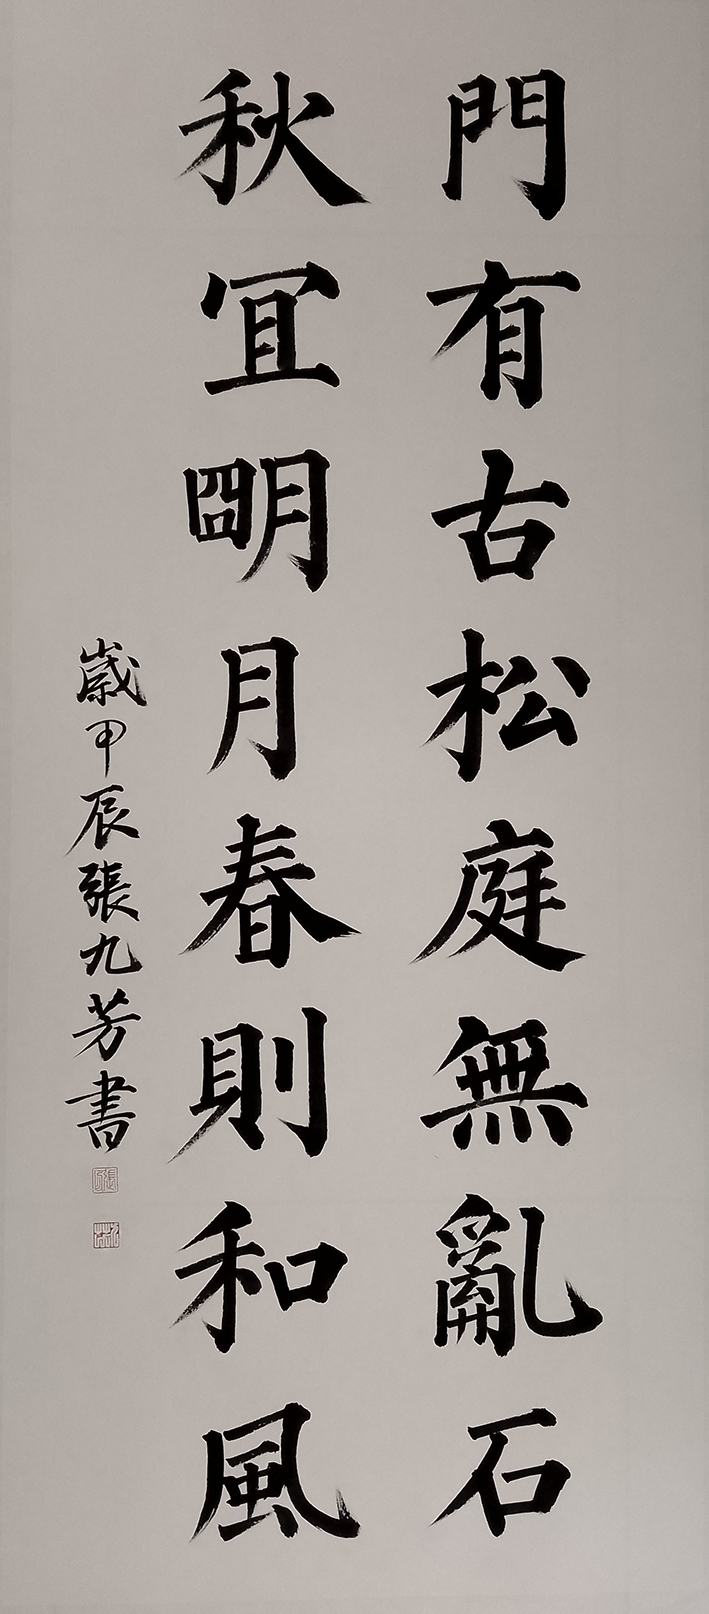 門有古松庭無亂石
秋冝朙月春則和風
歲甲辰張九芳書